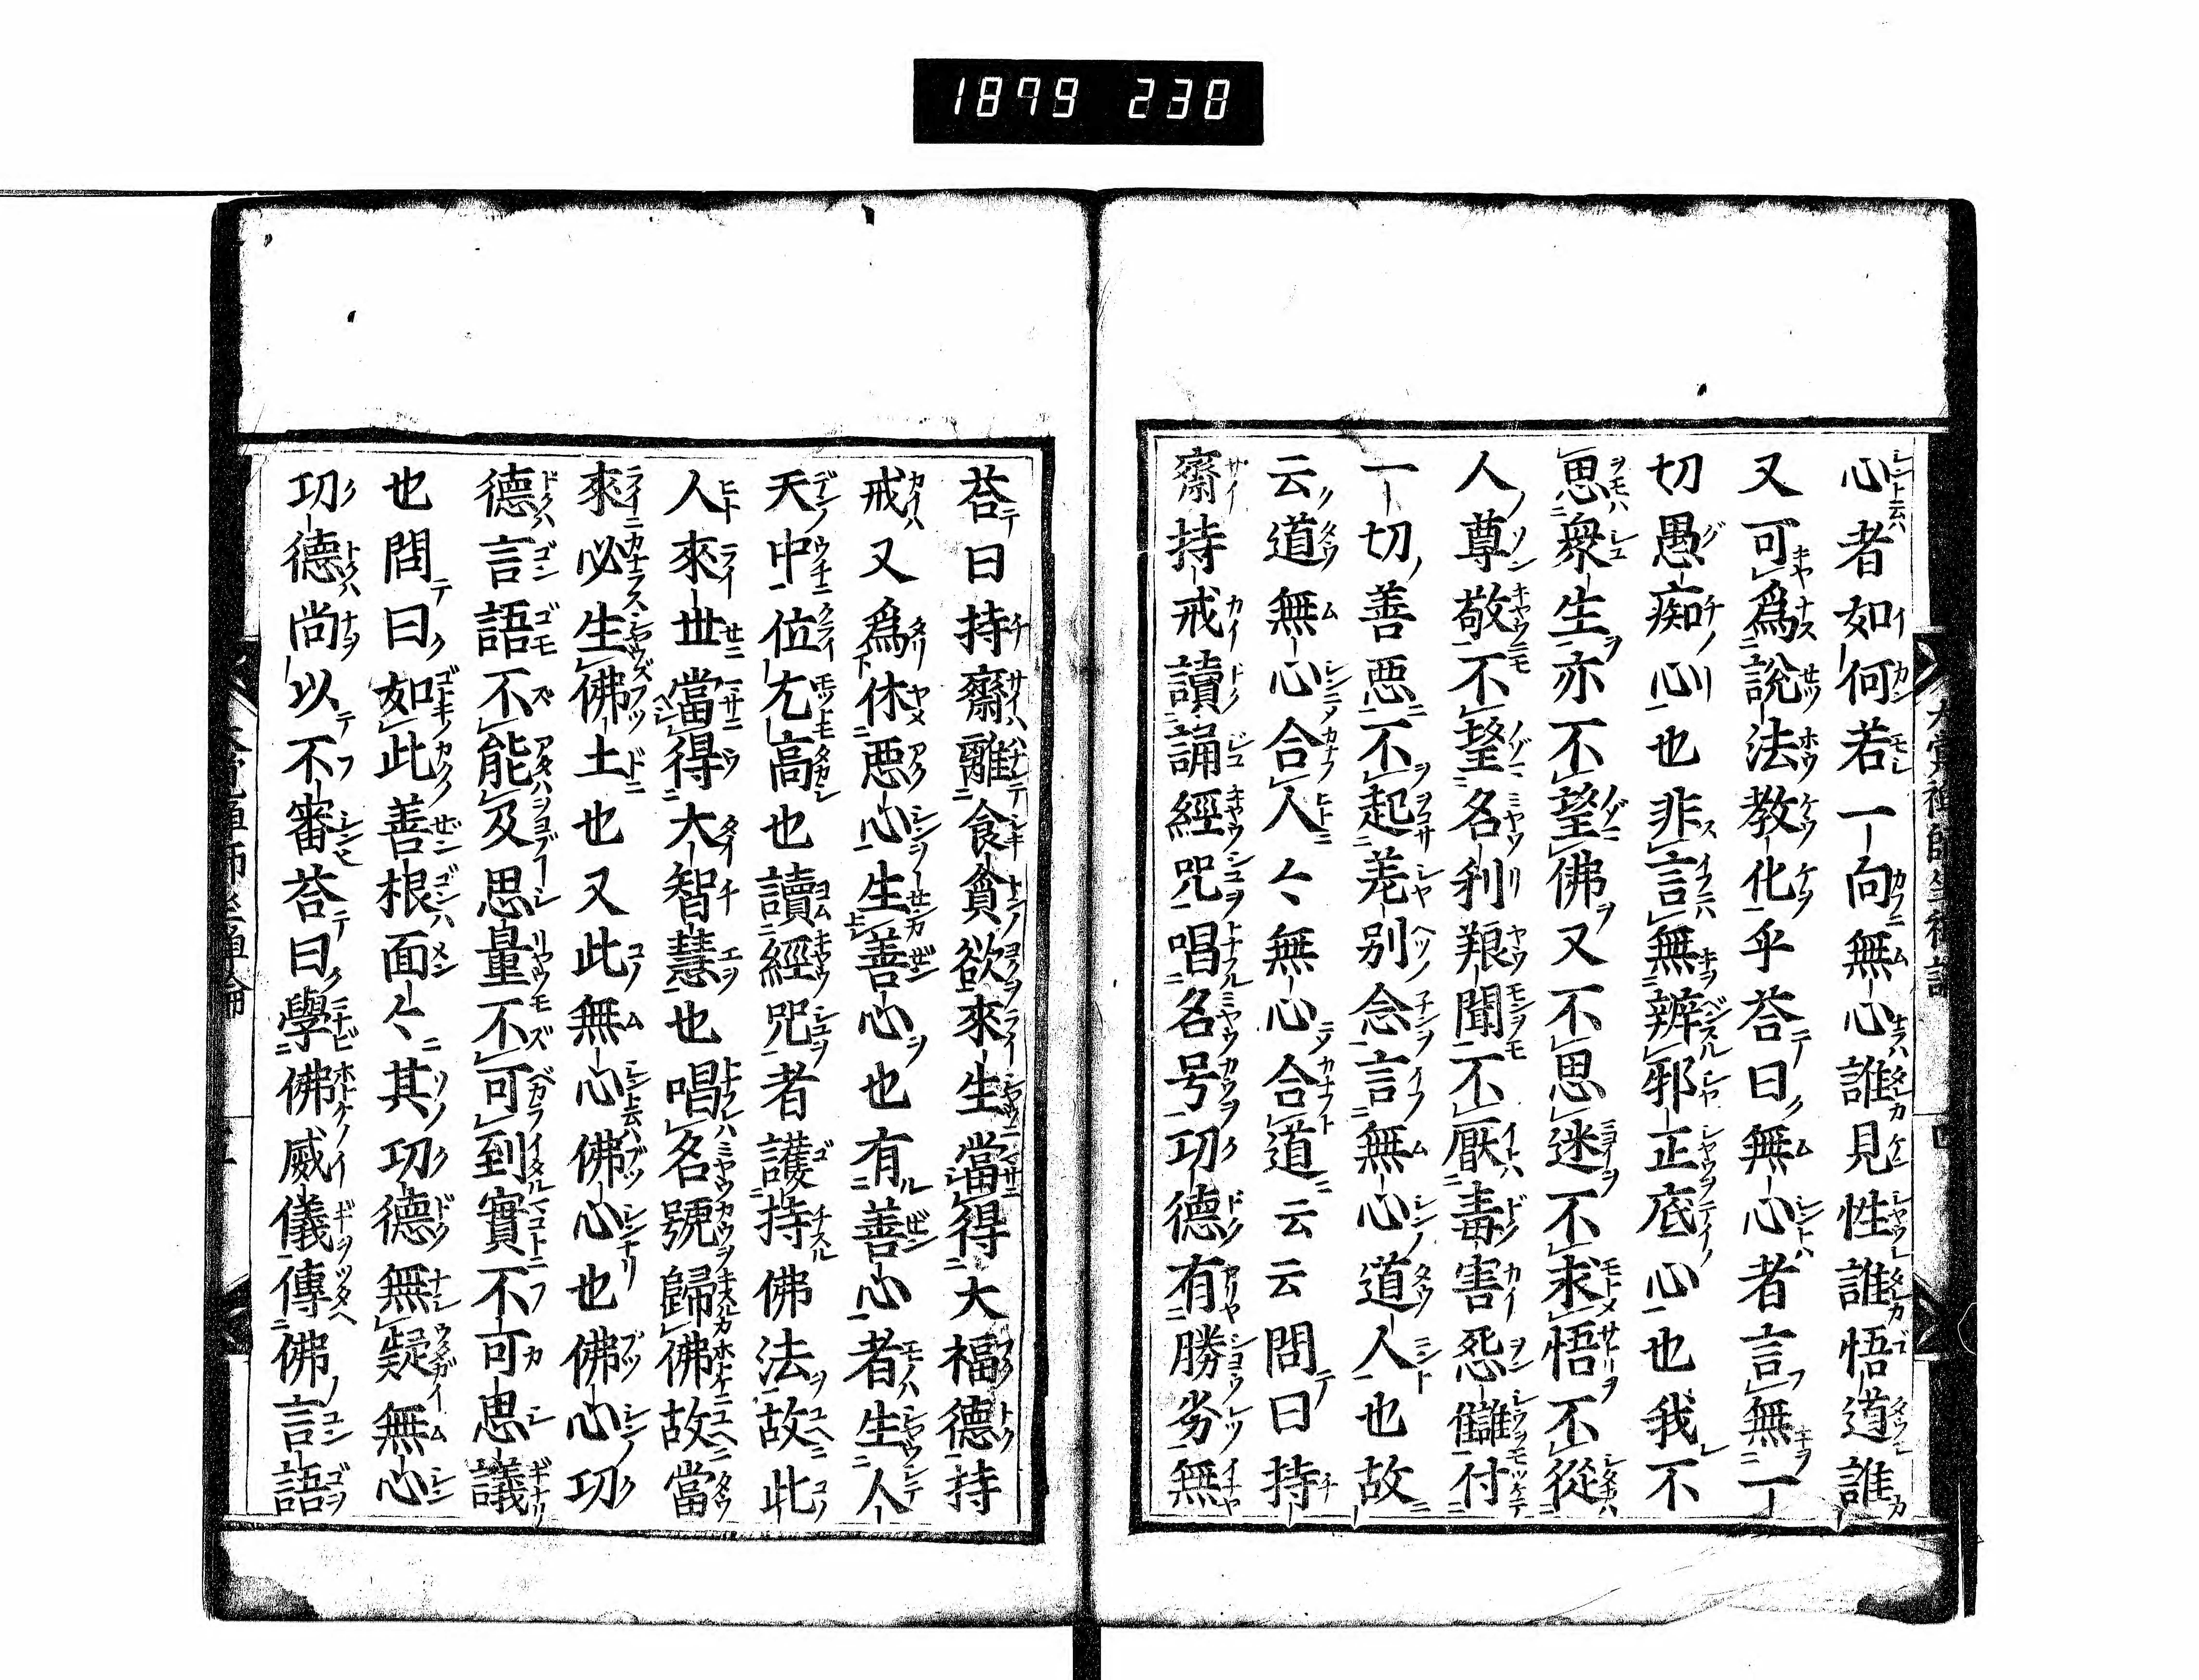 1879 238
心者如何若一向無心誰見性誰悟道誰
又可為說法教化乎荅曰無心者言無一
切愚痴心也非言無辨邪正底心也我不
思衆生亦不望佛又不思迷不求悟不從
人尊敬不望名利羪聞不厭毒害怨讎付
一切善悪不起差別念言無心道人也故
云道無心合人〻無心合道云云問曰持
齋持戒讀誦經咒唱名号功德有勝劣無
荅曰持齋離食貪欲來生當得大福德持
戒又為休悪心生善心也有善心者生人
天中位尢高也讀經咒者護持佛法故此
人來世當得大智慧也唱名號歸佛故當
來必生佛土也又此無心佛心也佛心功
德言語不能及思量不可到實不可思議
也問曰如此善根面〻其功德無疑無心
功德尚以不審荅曰學佛威儀傳佛言語